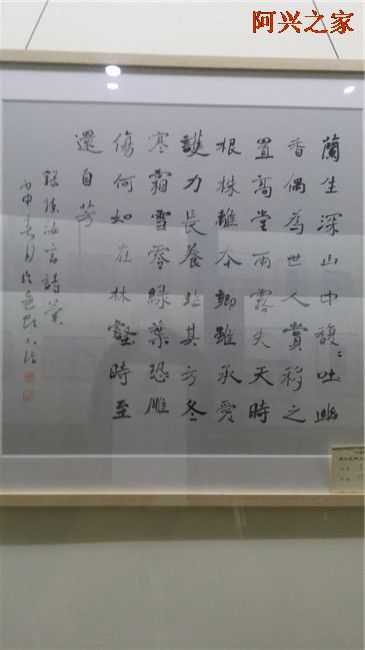 阿兴之家
蘭生深山中馥々吐幽
香偶為世人賞移之
置高堂雨露失天時
根株離本鄉雖承愛
護力長養非其方冬
寒霜雪零綠葉恐雕
傷何如在林壑時至
還自芳
錄陳汝言詩蘭
丙申春月於